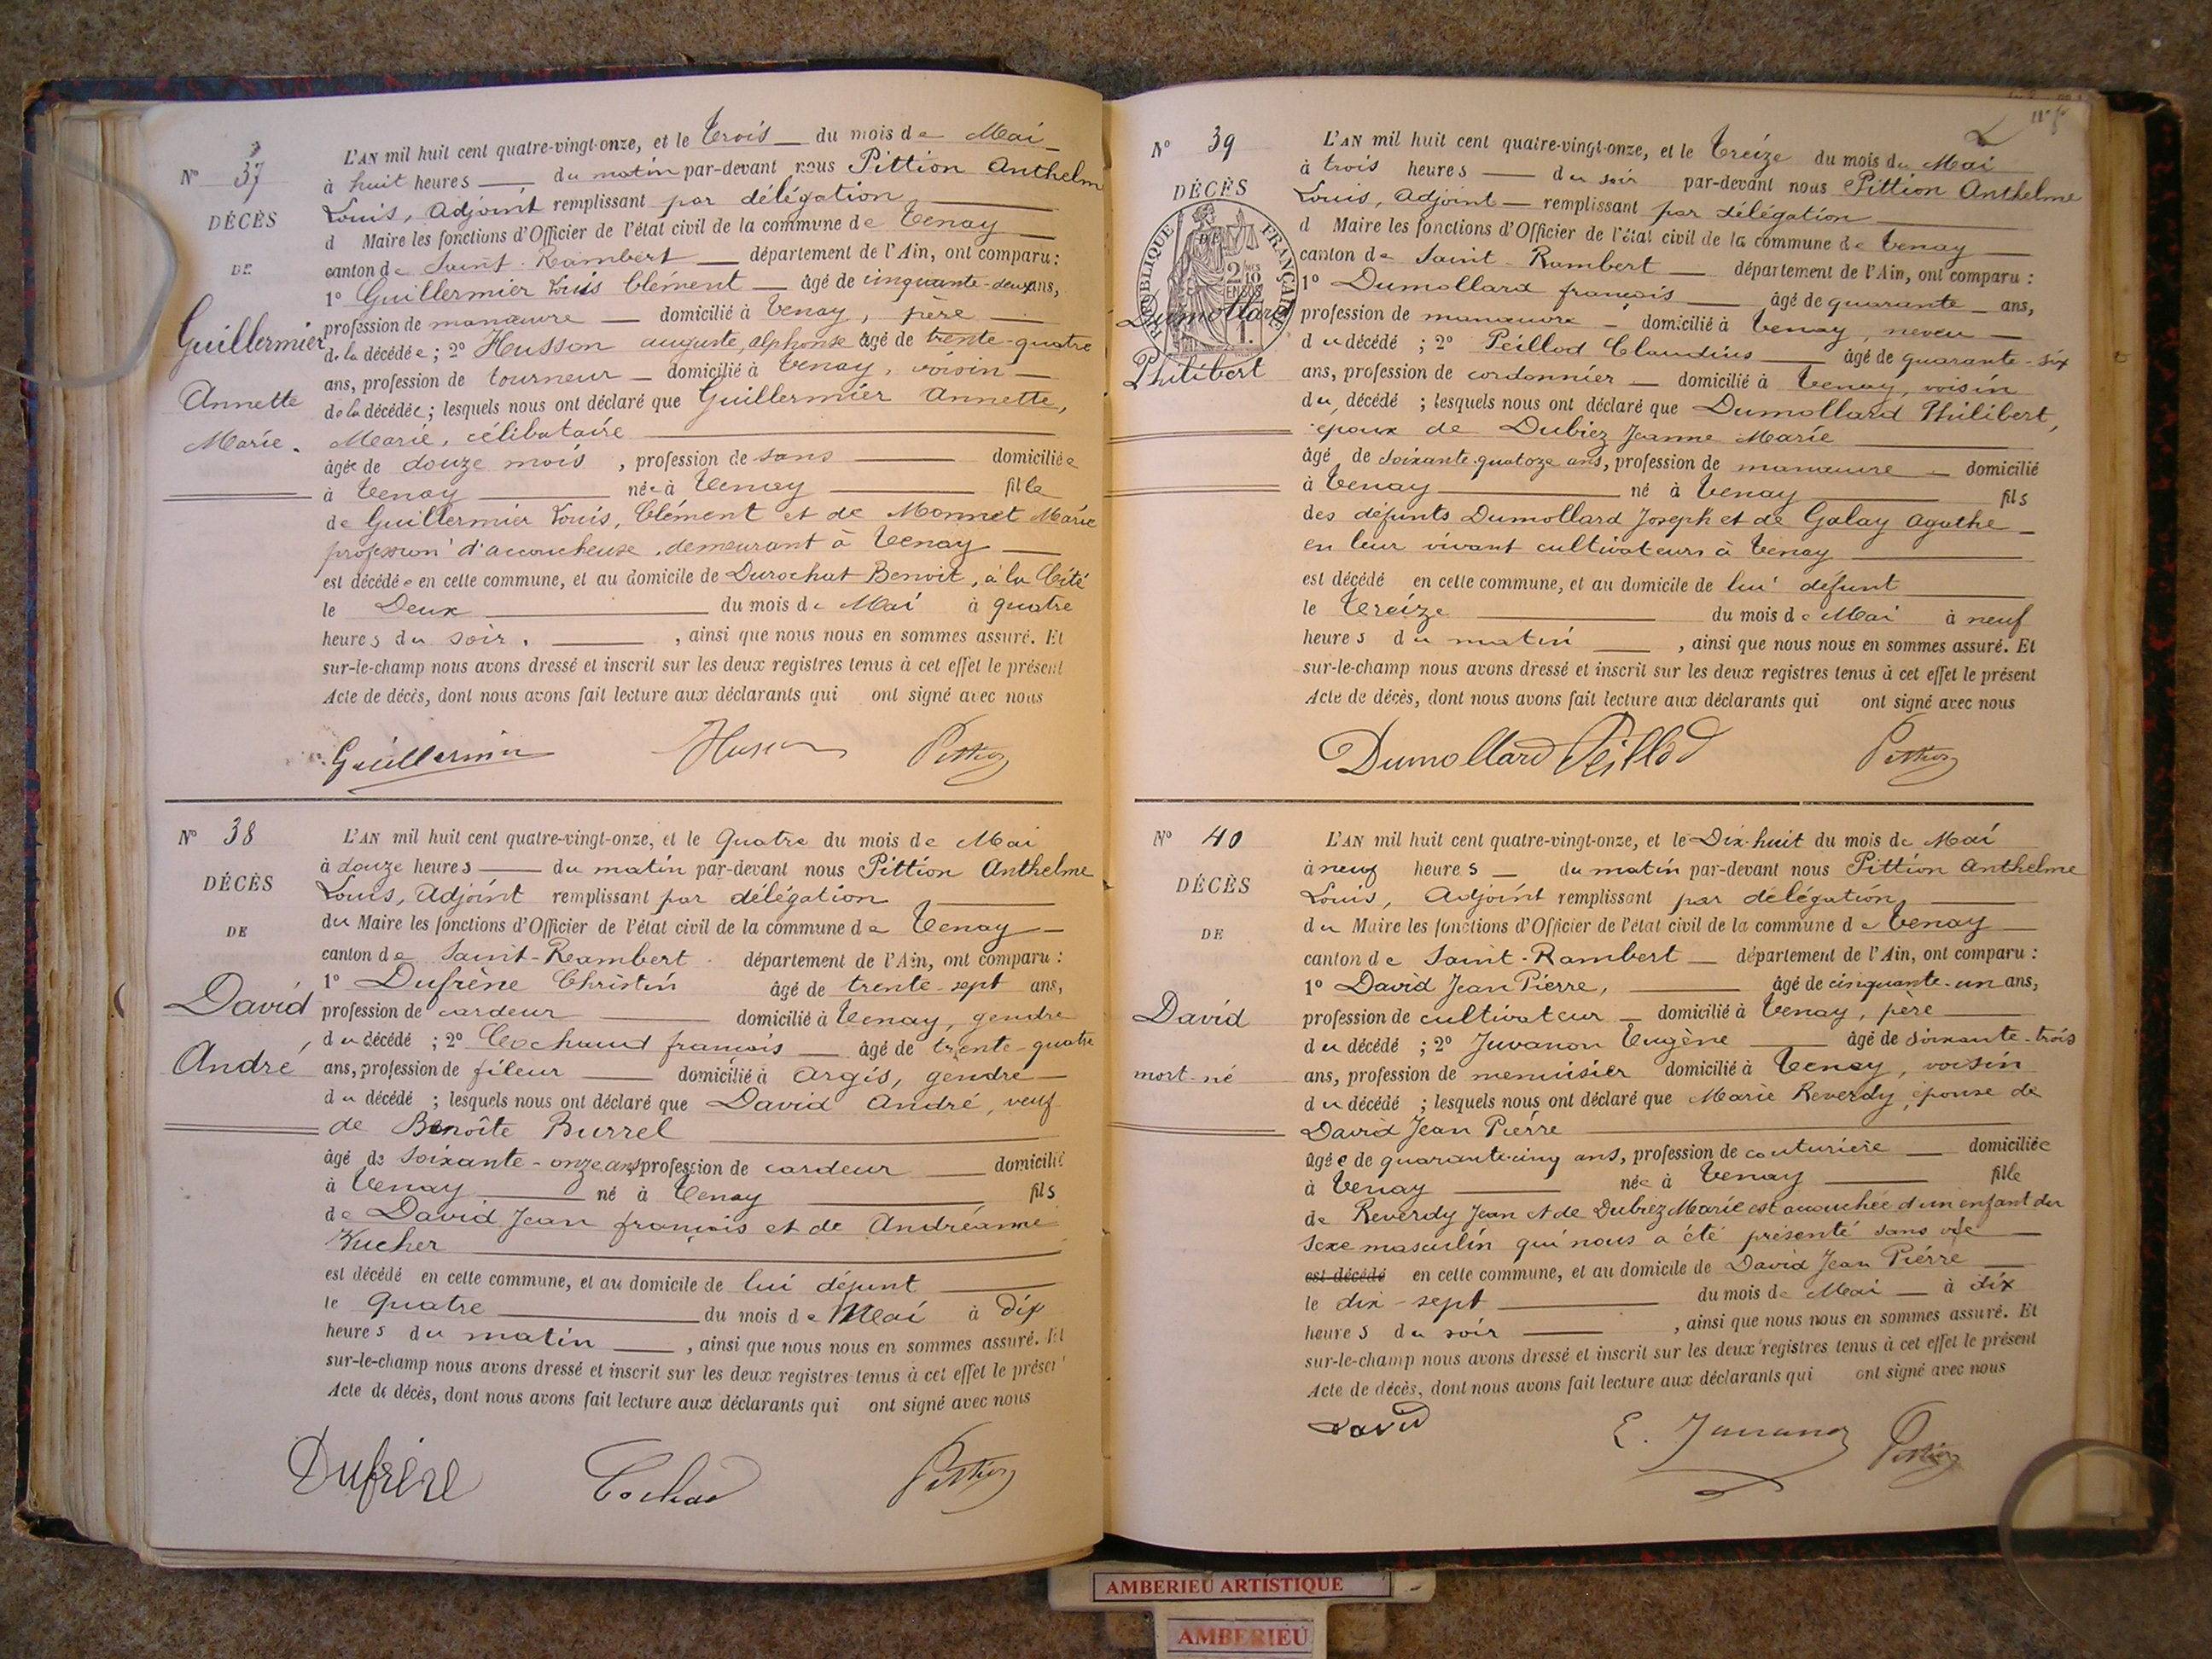 N° 37
DÉCÈS
DE
Guillermier
Annette
Marie.
L'AN mil huit cent quatre-vingt-onze, et le Trois du mois de Mai
à huit heures du matin par-devant nous Pittion Anthelm
Louis, Adjoint remplissant par délégation
d Maire les fonctions d'Officier de l'état civil de la commune de Tenay
canton de Saint-Rambert département de l'Ain, ont comparu :
1° Guillermier Louis Clément âgé de cinquante-deux ans,
profession de manœuvre domicilié à Tenay, père
de la décédée ; 2° Husson auguste, alphonse âgé de trente-quatre
ans, profession de tourneur domicilié à Tenay, voisin
de la décédée ; lesquels nous ont déclaré que Guillermier Annette,
Marie, célibataire
âgée de douze mois, profession de sans domiciliée
à Tenay née à Tenay fille
de Guillermier Louis, Clément et de Monnet Marie
profession d'accoucheuse, demeurant à Tenay
est décédée en cette commune, et au domicile de Durochat Benoit, à la Cité
le Deux du mois de Mai à quatre
heures du soir, ainsi que nous nous en sommes assuré. Et
sur-le-champ nous avons dressé et inscrit sur les deux registres tenus à cet effet le présent
Acte de décès, dont nous avons fait lecture aux déclarants qui ont signé avec nous
Guillermin Husson Pittion
N° 38
DÉCÈS
DE
David
André
L'AN mil huit cent quatre-vingt-onze, et le Quatre du mois de Mai
à douze heures du matin par-devant nous Pittion Anthelme
Louis, Adjoint remplissant par délégation
du Maire les fonctions d'Officier de l'état civil de la commune de Tenay
canton de Saint-Rambert département de l'Ain, ont comparu :
1° Dufrène Christin âgé de trente-sept ans,
profession de cardeur domicilié à Tenay, gendre
du décédé ; 2° Cochaud françois âgé de trente-quatre
ans, profession de fileur domicilié à Argis, gendre
du décédé ; lesquels nous ont déclaré que David André, veuf
de Benoîte Burrel
âgé de soixante-onze ans profession de cardeur domicilié
à Tenay né à Tenay fils
de David Jean françois et de Andréanne
Kucher
est décédé en cette commune, et au domicile de lui défunt
le Quatre du mois de Mai à dix
heures du matin, ainsi que nous nous en sommes assuré. Et
sur-le-champ nous avons dressé et inscrit sur les deux registres tenus à cet effet le présen
Acte de décès, dont nous avons fait lecture aux déclarants qui ont signé avec nous
Dufrène Cochad Pittion
N° 39
DÉCÈS
RÉPUBLIQUE FRANÇAISE
Dumollard
Philibert
L'AN mil huit cent quatre-vingt-onze, et le Treize du mois de Mai
à trois heures du soir par-devant nous Pittion Anthelme
Louis, Adjoint remplissant par délégation
d Maire les fonctions d'Officier de l'état civil de la commune de Tenay
canton de Saint-Rambert département de l'Ain, ont comparu :
1° Dumollard françois âgé de quarante ans,
profession de manœuvre domicilié à Tenay, neveu
du décédé ; 2° Peillod Claudius âgé de quarante-six
ans, profession de cordonnier domicilié à Tenay, voisin
du décédé ; lesquels nous ont déclaré que Dumollard Philibert,
époux de Dubiez Jeanne Marie
âgé de soixante quatoze ans, profession de manœuvre domicilié
à Tenay né à Tenay fils
des défunts Dumollard Joseph et de Galay Agathe
en leur vivant cultivateurs à Tenay
est décédé en cette commune, et au domicile de lui défunt
le Treize du mois de Mai à neuf
heures du matin, ainsi que nous nous en sommes assuré. Et
sur-le-champ nous avons dressé et inscrit sur les deux registres tenus à cet effet le présent
Acte de décès, dont nous avons fait lecture aux déclarants qui ont signé avec nous
Dumollard Peillod Pittion
N° 40
DÉCÈS
DE
David
mort-né
L'AN mil huit cent quatre-vingt-onze, et le Dix-huit du mois de Mai
à neuf heures du matin par-devant nous Pittion Anthelme
Louis, Adjoint remplissant par délégation,
du Maire les fonctions d'Officier de l'état civil de la commune de Tenay
canton de Saint-Rambert département de l'Ain, ont comparu :
1° David Jean Pierre, âgé de cinquante-un ans,
profession de cultivateur domicilié à Tenay, père
du décédé ; 2° Juvanon Eugène âgé de soixante-trois
ans, profession de menuisier domicilié à Tenay, voisin
du décédé ; lesquels nous ont déclaré que Marie Reverdy, épouse de
David Jean Pierre
âgée de quarante-cinq ans, profession de couturière domiciliée
à Tenay née à Tenay fille
de Reverdy Jean et de Dubiez Marie est accouchée d'un enfant du
sexe masculin qui nous a été présenté sans vie
est décédé en cette commune, et au domicile de David Jean Pierre
le dix-sept du mois de Mai à dix
heures du soir, ainsi que nous nous en sommes assuré. Et
sur-le-champ nous avons dressé et inscrit sur les deux registres tenus à cet effet le présent
Acte de décès, dont nous avons fait lecture aux déclarants qui ont signé avec nous
David E. Juvanon Pittion
AMBERIEU ARTISTIQUE
AMBERIEU